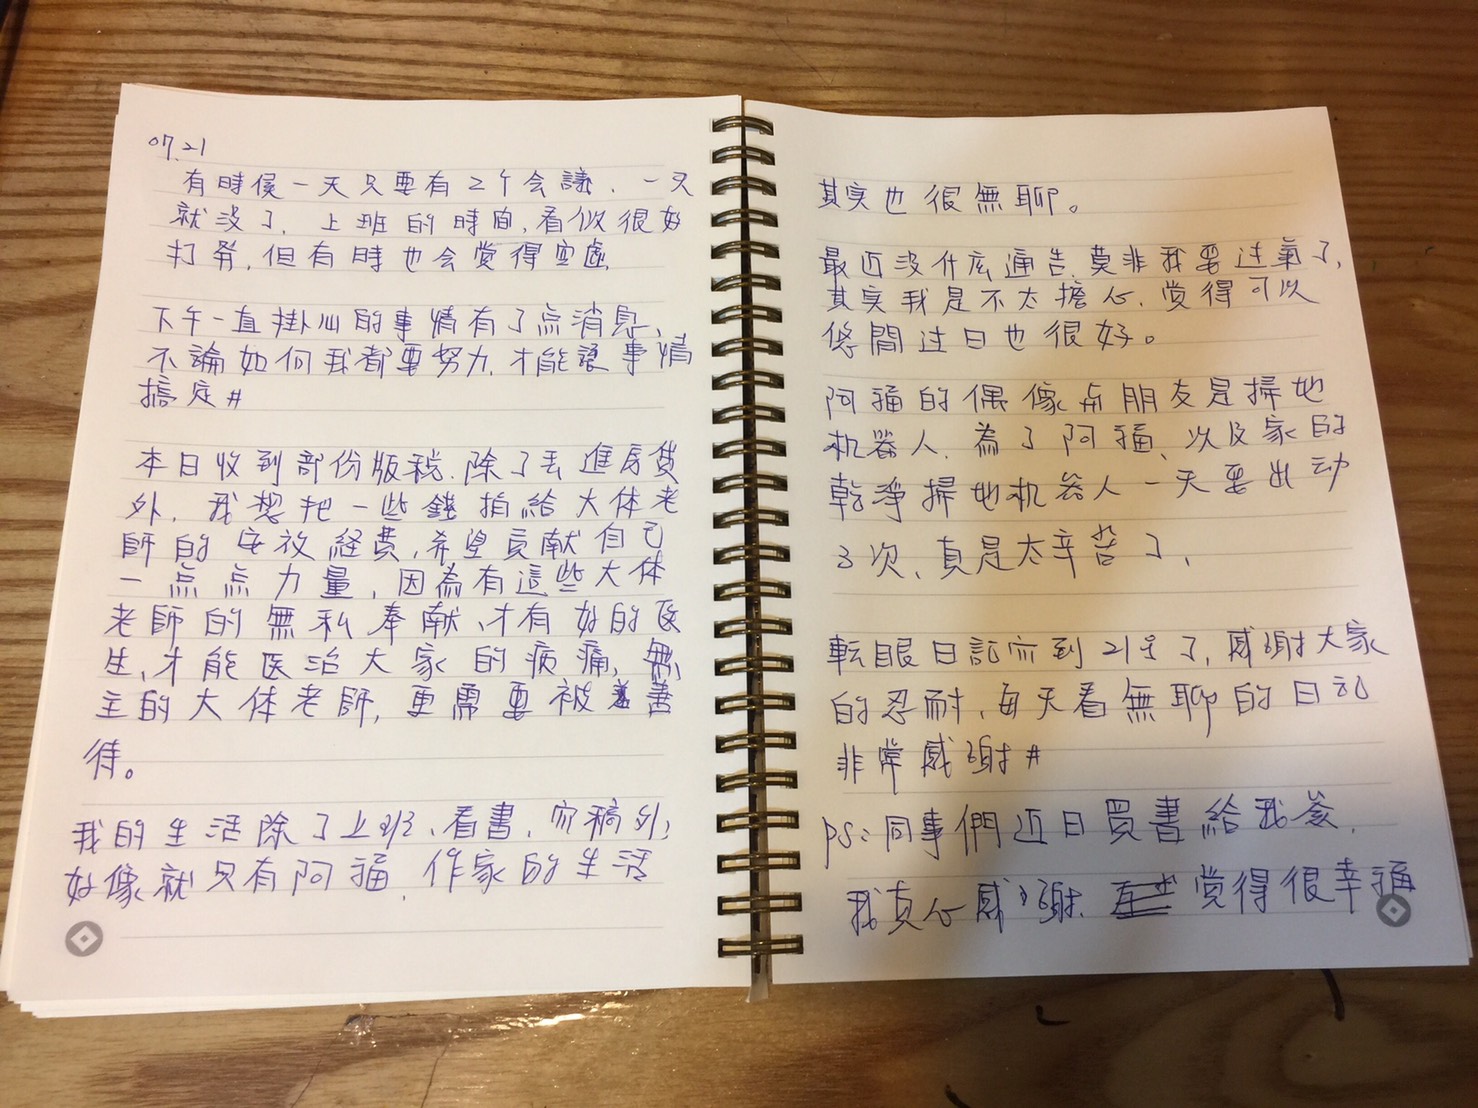 07.21
有時候一天只要有2个会議、一天
就没了、上班的時间,看似很好
打發,但有時也会覚得空虛
下午一直掛心的事情有了点消息、
不論如何我都要努力,才能讓事情
搞定#
本日收到部份版税,除了丟進房贷
外,我想把一些錢捐給大体老
師的安放経費,希望貢献自己
一点点力量,因為有這些大体
老師的無私奉献、才有好的医
生,才能医治大家的病痛,無
主的大体老師,更需要被善
待。
我的生活除了上班、看書、写稿外,
好像就只有阿福,作家的生活
其实也很無聊。
最近没什么通告,莫非我要过氣了,
其実我是不太擔心,覚得可以
悠閒过日也很好。
阿福的偶像兵朋友是掃地
机器人,為了阿福、以及家的
乾淨掃地机器人一天要出动
3次、真是太辛苦了、
転眼日記写到21号了,感謝大家
的忍耐,每天看無聊的日記
非常感謝#
ps:同事們近日買書給我簽,
我真心感謝、覚得很幸福